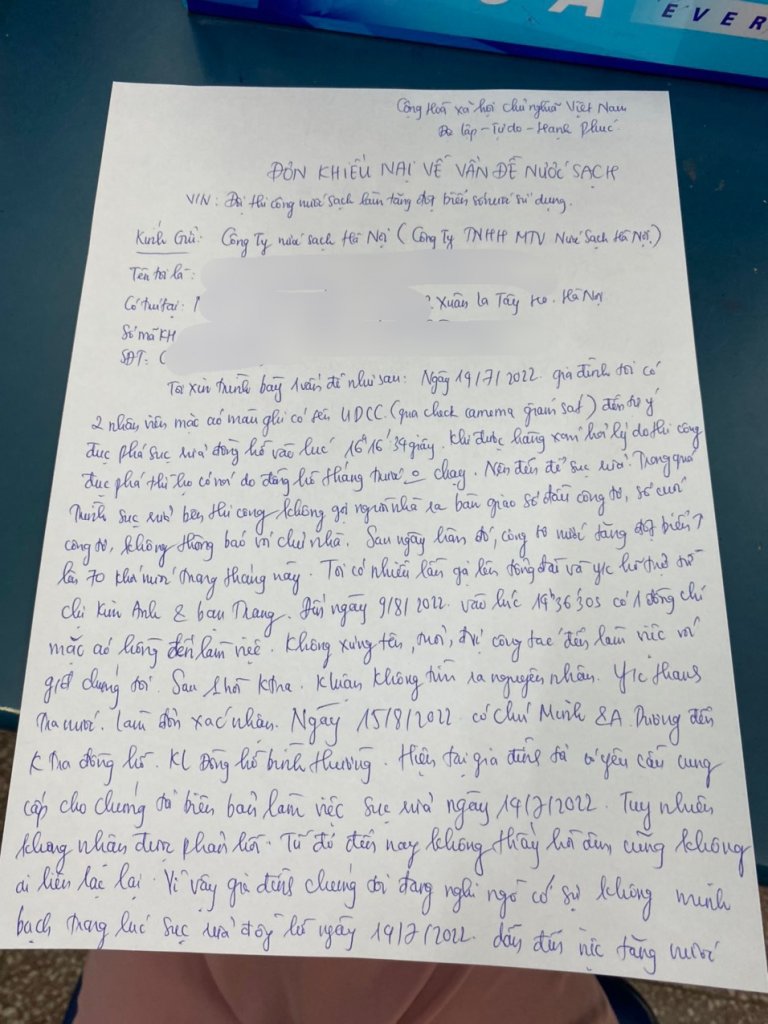 EVER
Cộng Hoà xã hội chủ nghĩa Việt Nam
Độ lập - Tự do - Hạnh phúc
ĐƠN KHIẾU NẠI VỀ VẤN ĐỀ NƯỚC SẠCH
V/N: Đội thi công nước sạch làm tăng đột biến số nước sử dụng.
Kính Gửi: Công Ty nước sạch Hà Nội (Công Ty TNHH MTV Nước Sạch Hà Nội.)
Tên tôi là:
Có trú tại: Xuân La Tây Hồ. Hà Nội
Số mã KH
SĐT:
Tôi xin trình bày 1 vấn đề như sau: Ngày 19/7/2022. gia đình tôi có
2 nhân viên mặc áo màu ghi có tên UDCC. (qua check camera giám sát) đến tự ý
đục phá sục rửa đồng hồ vào lúc 16h16'39 giây. Khi được hàng xóm hỏi lý do thi công
đục phá thì họ có nói do đồng hồ tháng trước o chạy. Nên đến để sục rửa. Trong quá
trình sục rửa bên thi công không gọi người nhà ra bàn giao số đầu công tơ, số cuối
công tơ, không thông báo với chủ nhà. Sau ngày hôm đó, công tơ nước tăng đột biến ↑
lên 70 khối nước trong tháng này. Tôi có nhiều lần gọi lên tổng đài và y/c hỗ trợ từ
chị Kim Anh & bạn Trang. Đến ngày 9/8/2022. vào lúc 19h36'30s có 1 đồng chí
mặc áo hồng đến làm việc. Không xưng tên, đơn vị công tác đến làm việc với
gia đình chúng tôi. Sau 1 hồi ktra. Khoản không tìm ra nguyên nhân. Y/c thanh
tra nước. làm đơn xác nhận. Ngày 15/8/2022. có chú Minh & A. Dương đến
k tra đồng hồ. KL Đồng hồ bình thường. Hiện tại gia đình đã có yêu cầu cung
cấp cho chúng tôi biên bản làm việc sục rửa ngày 19/7/2022. Tuy nhiên
không nhận được phản hồi. Từ đó đến nay không thấy hồi âm cũng không
ai liên lạc lại. Vì vậy gia đình chúng tôi đang nghi ngờ có sự không minh
bạch trong lúc sục rửa đồng hồ ngày 19/7/2022. dẫn đến việc tăng nước